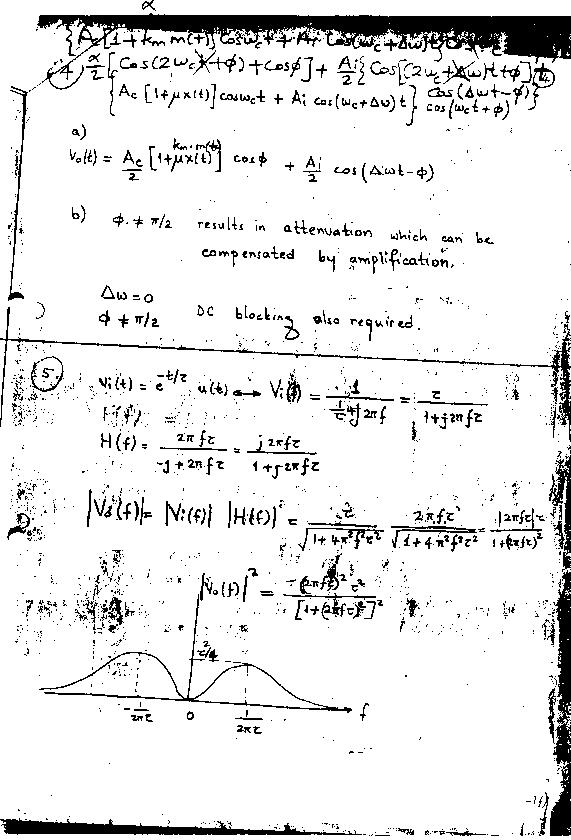 α
{A_c[1+k_m m(t)] cosω_c t + A_i cos(ω_c+Δω)t}
(4) α/2 [cos(2ω_c t+φ)+cosφ] + A_i/2 {cos[(2ω_c+Δω)t+φ]
{A_c [1+μx(t)] cosω_c t + A_i cos(ω_c+Δω)t} cos(Δωt-φ)}
cos(ω_c t+φ)
a)
k_m m(t)
V_o(t) = A_c/2 [1+μx(t)] cosφ + A_i/2 cos(Δωt-φ)
b) φ ≠ π/2 results in attenuation which can be
compensated by amplification.
Δω=0
φ ≠ π/2 DC blocking also required.
(5) V_i(t) = e^{-t/τ} u(t) ↔ V_i(f) = 1/(1/τ+j2πf) = τ/(1+j2πfτ)
H(f) =
H(f) = 2πfτ/(-j+2πfτ) = j2πfτ/(1+j2πfτ)
|V_o(f)| = |V_i(f)| |H(f)| = τ/√(1+4π²f²τ²) 2πfτ/√(1+4π²f²τ²) = |2πfτ|τ/(1+(2πfτ)²)
|V_o(f)|² = (2πfτ)² τ²/[1+(2πfτ)²]²
τ²/4
f
-1/2πτ 0 1/2πτ